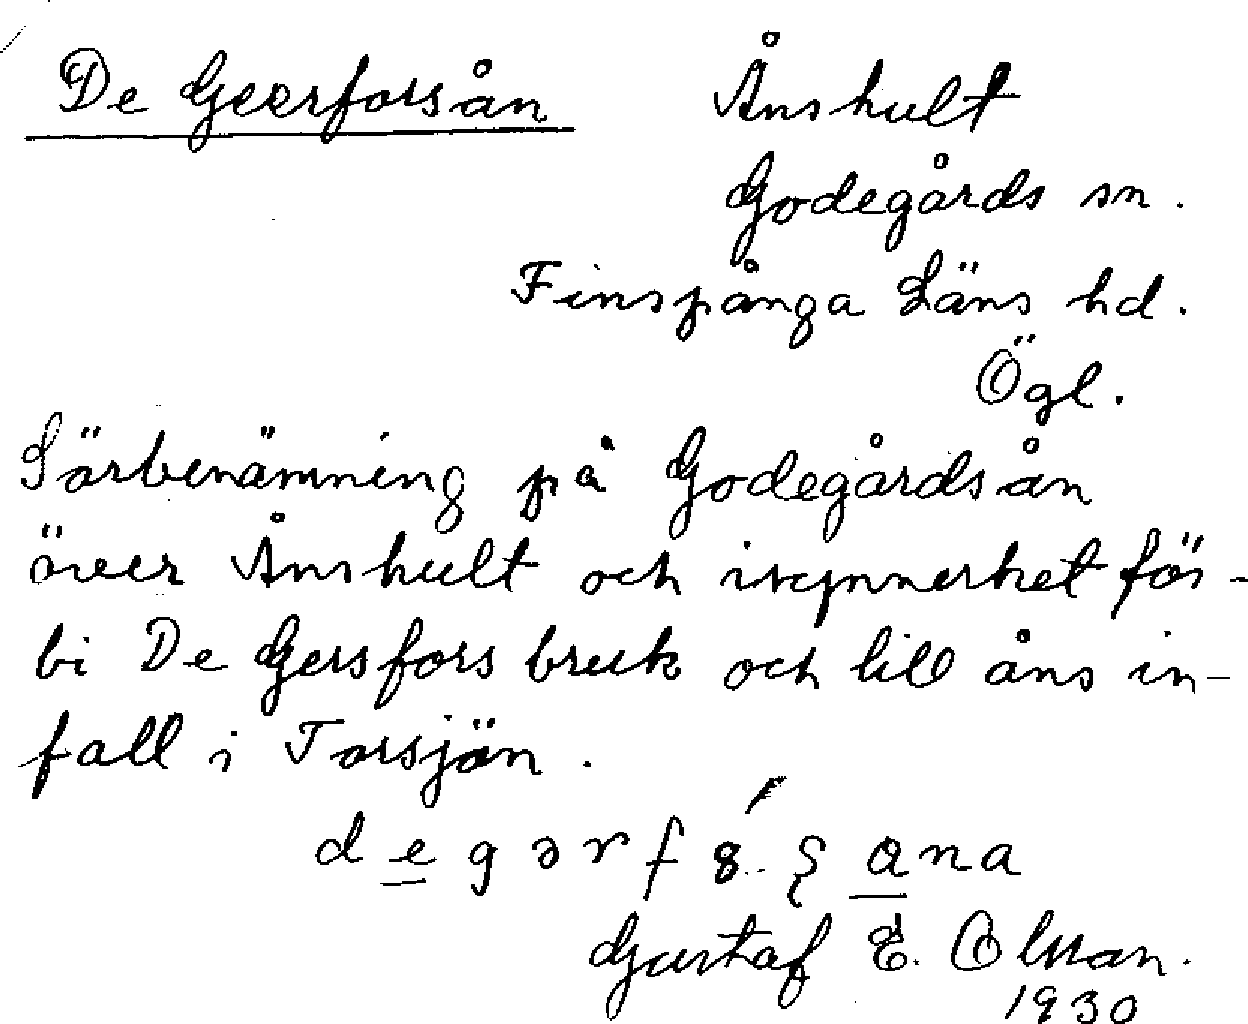 De Geerforsån Ånshult
Godegårds sn.
Finspånga Läns hd.
Ögl.
Särbenämning på Godegårdsån
över Ånshult och isynnerhet för-
bi De Gersfors bruk och till åns in-
fall i Torsjön.
Gustaf E. Olsson.
1930